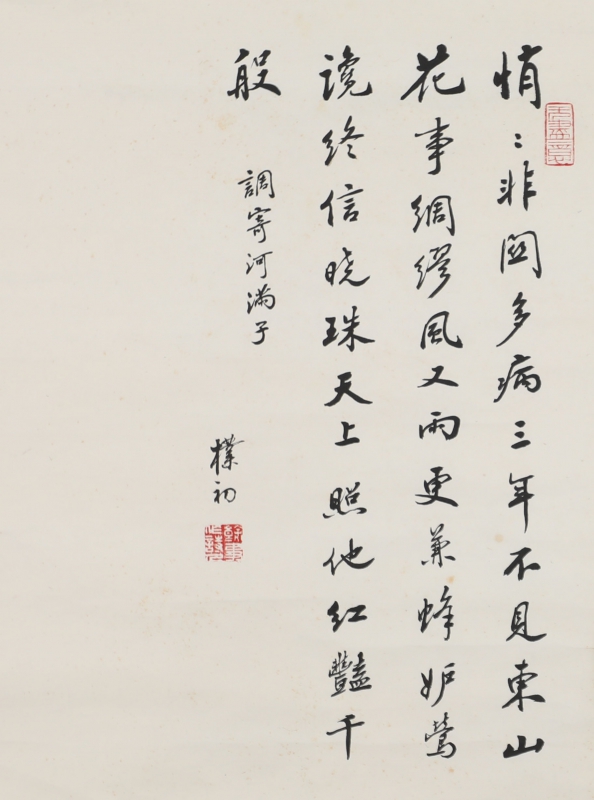 悄〻非關多病三年不見東山
花事綢繆風又雨更兼蜂妒鶯
讒終信曉珠天上照他紅豔千
般
調寄河滿子
樸初